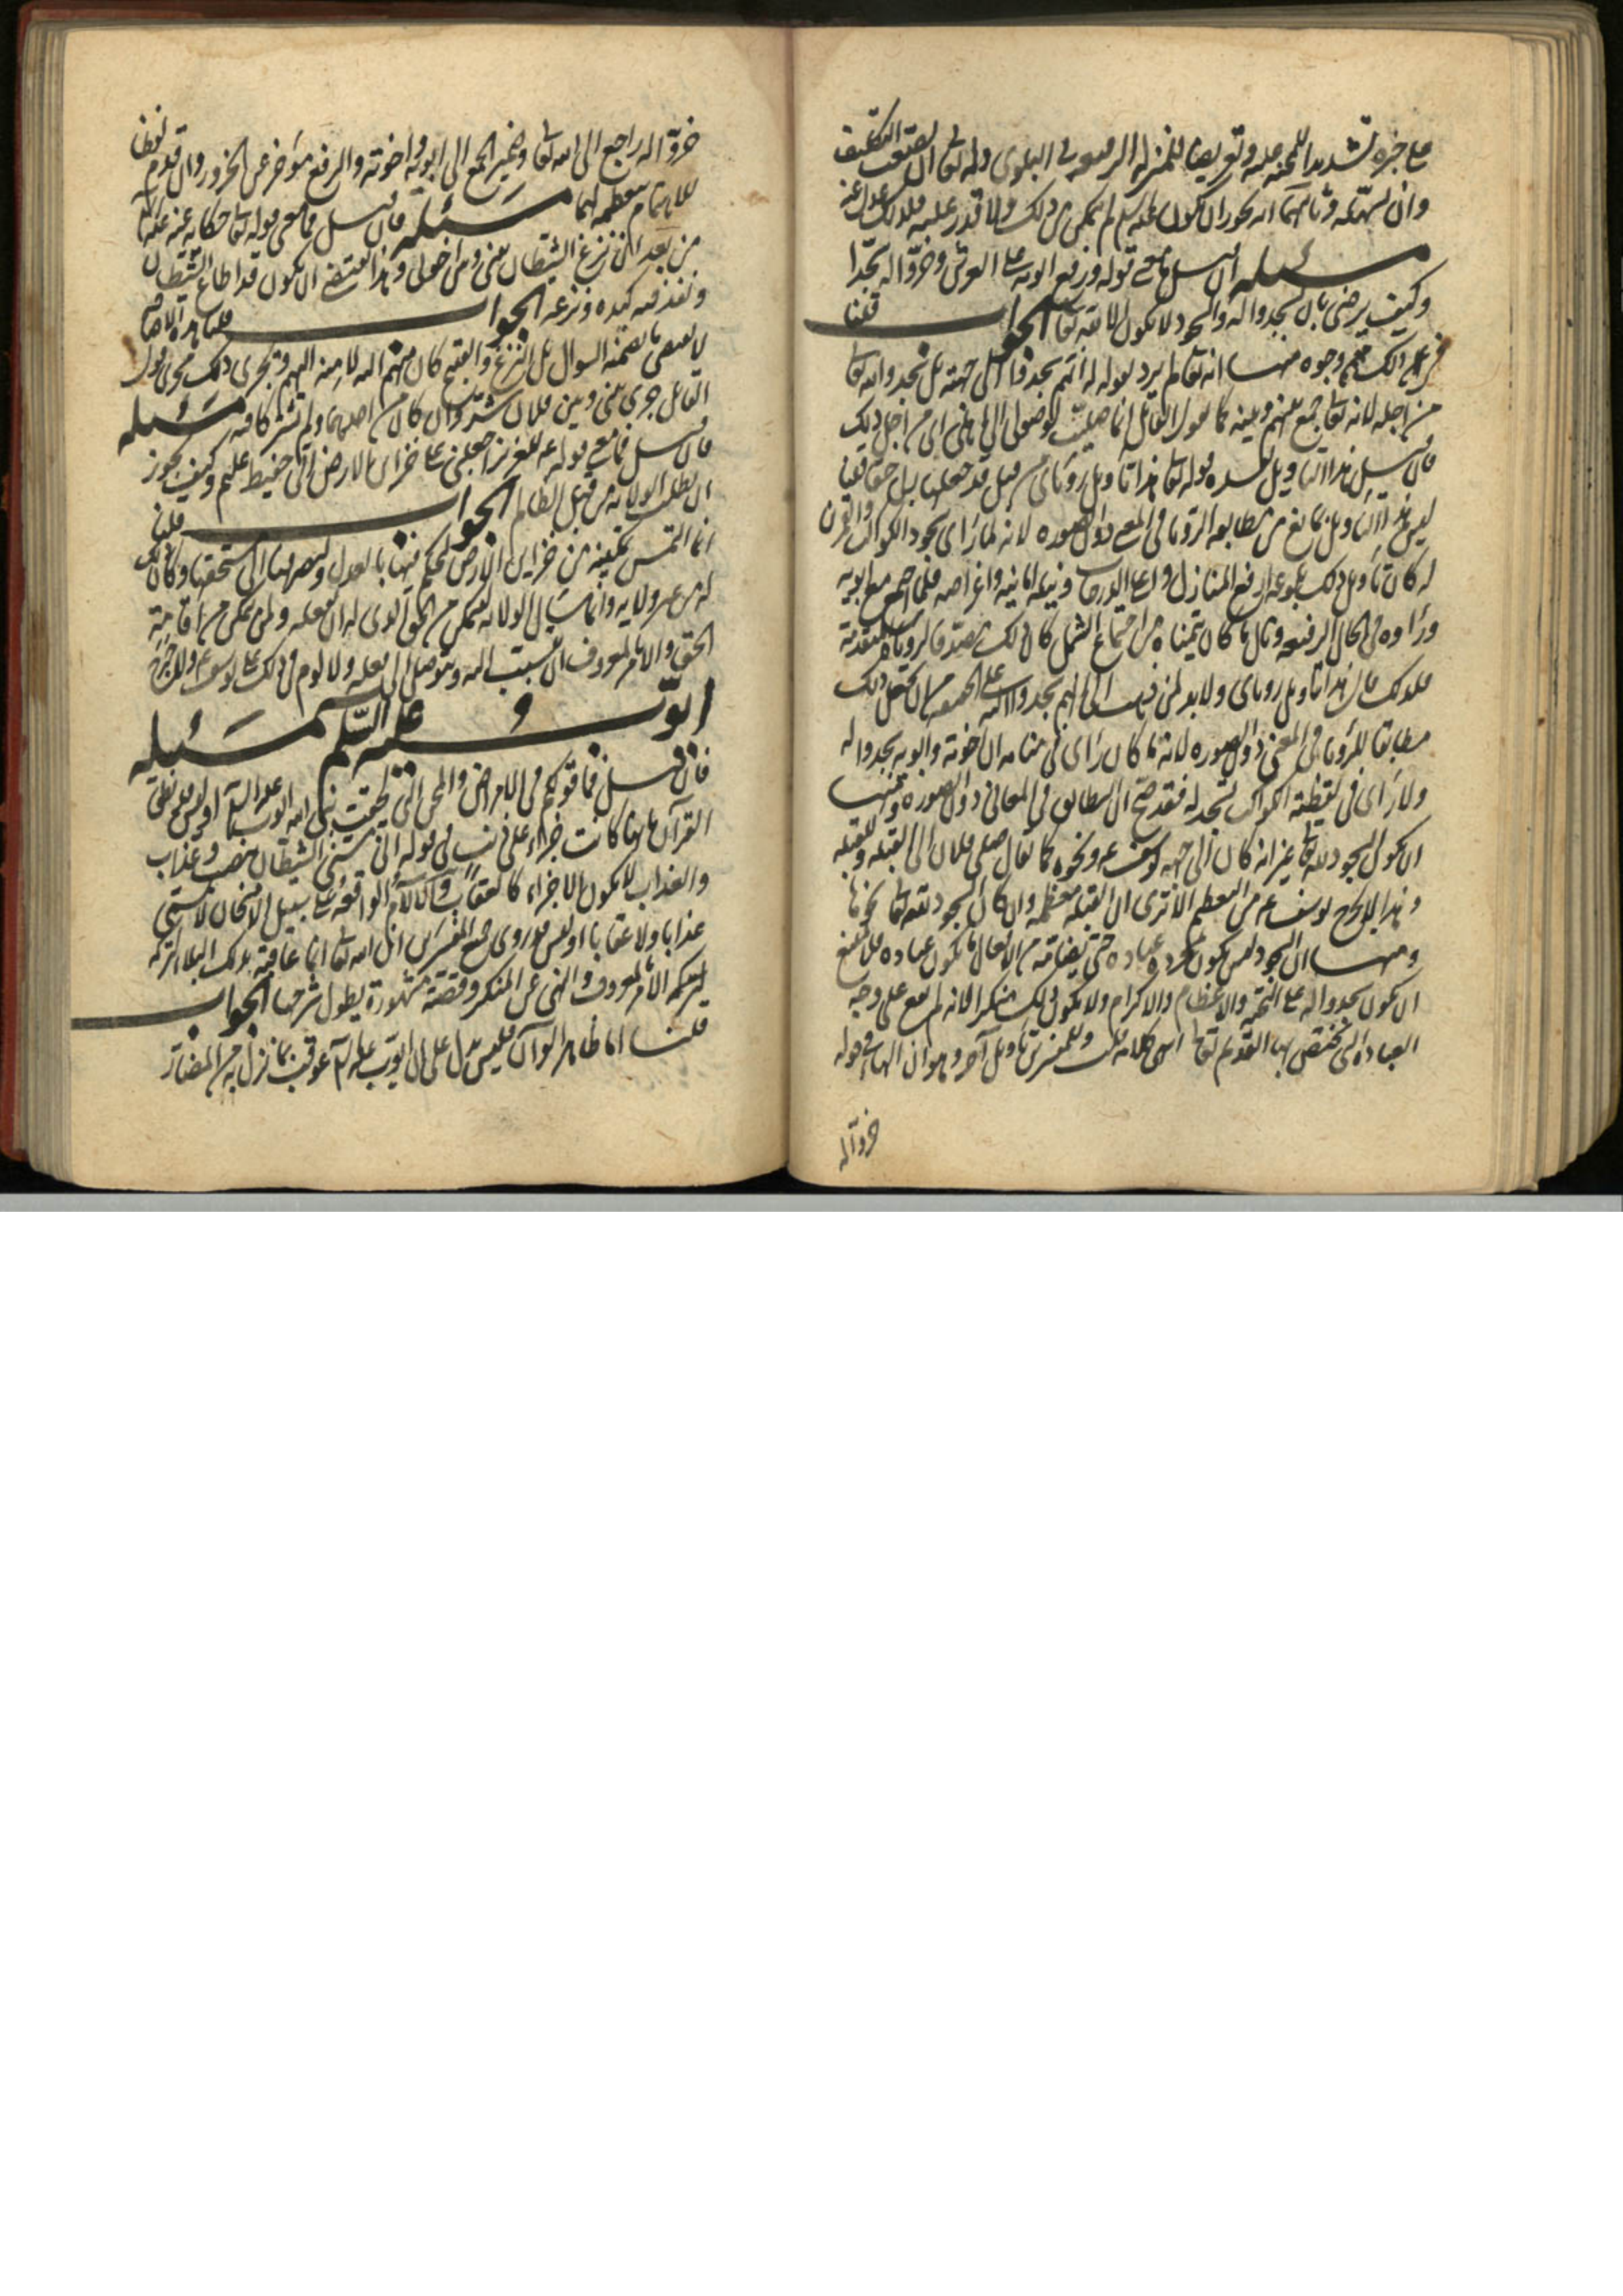 على خبره تشديدا للمحنة عليه وتعريضا للمنزلة الرفيعة في البلوى وله تعالى ان يصعب التكليف
وان يسهله وثانيهما انه يجوز ان يكون عليه السلم لم يتمكن من ذلك ولا قدر عليه فلذلك عدل عنه
مسئله فان قيل فما معنى قوله ورفع ابويه على العرش وخروا له سجدا
وكيف يرضى بان يسجدوا له والسجود لا يكون الا لله تعالى الجواب قلنا
في ذلك وجوه منها انه تعالى لم يرد بقوله انهم سجدوا الى جهته بل سجدوا لله تعالى
من اجله لانه تعالى جمع بينهم وبينه كما يقول القائل انما صليت لوصولي الى اهلي اي من اجل ذلك
فان قيل هذا التاويل يفسده قوله تعالى هذا تاويل رؤياي من قبل قد جعلها ربي حقا قلنا
ليس هذا التاويل بمانع من مطابقة الرؤيا في المعنى دون الصورة لانه لما راى سجود الكواكب والقمرين
له كان تاويل ذلك بلوغه ارفع المنازل واعلى الدرجات ونيله امانيه واغراضه فلما اجتمع مع ابويه
وراوه في الحال الرفيعة ونال ما كان يتمناه من اجتماع الشمل كان ذلك تصديقا لرؤياه المتقدمة
فلذلك قال هذا تاويل رؤياي ولا بد لمن ذهب الى انهم سجدوا له على الحقيقة من ان يجعل ذلك
مطابقا للرؤيا في المعنى دون الصورة لانه ما كان راى في منامه ان اخوته وابويه سجدوا له
ولا راى في اليقظة الكواكب تسجد له فقد صح ان التطابق في المعاني دون الصورة ومنها
ان يكون السجود لله تعالى غير انه كان الى جهة يوسف ع ونحوه كما يقال صلى فلان الى القبلة وللقبلة
وهذا لا يخرج يوسف ع من التعظيم الا ترى ان القبلة معظمة وان كان السجود لله تعالى نحوها
ومنها ان السجود ليس يكون بمجرده عبادة حتى يضامه من الافعال ما يكون عبادة فلا يمتنع
ان يكون سجدوا له على التحية والاعظام والاكرام ولا يكون ذلك منكرا لانه لم يقع على وجه
العبادة التي يختص بها القديم تعالى انتهى كلامه قلت وللمفسرين تاويل آخر وهو ان الهاء في قوله
خروا له
خروا له راجع الى الله تعالى وضمير الجمع الى ابويه واخوته والرفع مؤخر عن الخرور وان قدم لفظا
للاهتمام بتعظيمه لهما مسئله فان قيل فما معنى قوله تعالى حكاية عنه عليه السلم
من بعد ان نزغ الشيطان بيني وبين اخوتي وهذا يقتضي ان يكون قد اطاع الشيطان
ونفذ فيه كيده ونزغه الجواب قلنا هذه الاضافة
لا تقتضي ما تضمنه السؤال بل النزغ والقبيح كان منهم اليه لا منه اليهم ويجري ذلك مجرى قول
القائل جرى بيني وبين فلان شر وان كان من احدهما ولم يشتركا فيه مسئله
فان قيل فما معنى قوله ع للعزيز اجعلني على خزائن الارض اني حفيظ عليم وكيف يجوز
ان يطلب الولاية من قبل الظالم الجواب قلنا
انما التمس تمكينه من خزاين الارض ليحكم فيها بالعدل وليصرفها الى مستحقها وكان ذلك
له من غير ولاية وانما سال الولاية ليتمكن من الحق الذي له ان يفعله ولمن لا يتمكن من اقامة
الحق والامر بالمعروف ان يتسبب اليه ويتوصل الى فعله ولا لوم في ذلك على يوسف ع ولا حرج
ايوب عليه السلم مسئله
فان قيل فما قولكم في الامراض والمحن التي لحقت نبي الله ايوب عليه السلم اوليس قد نطق
القرآن بانها كانت جزاء على ذنب في قوله اني مسني الشيطان بنصب وعذاب
والعذاب لا يكون الا جزاء كالعقاب والآلام الواقعة على سبيل الامتحان لا تسمى
عذابا ولا عقابا اوليس قد روى جميع المفسرين ان الله تعالى انما عاقبه بذلك البلاء لتركه
الامر بالمعروف والنهي عن المنكر وقصته مشهورة يطول شرحها الجواب
قلنا اما ظاهر القرآن فليس يدل على ان ايوب عليه السلم عوقب بما نزل به من المضار